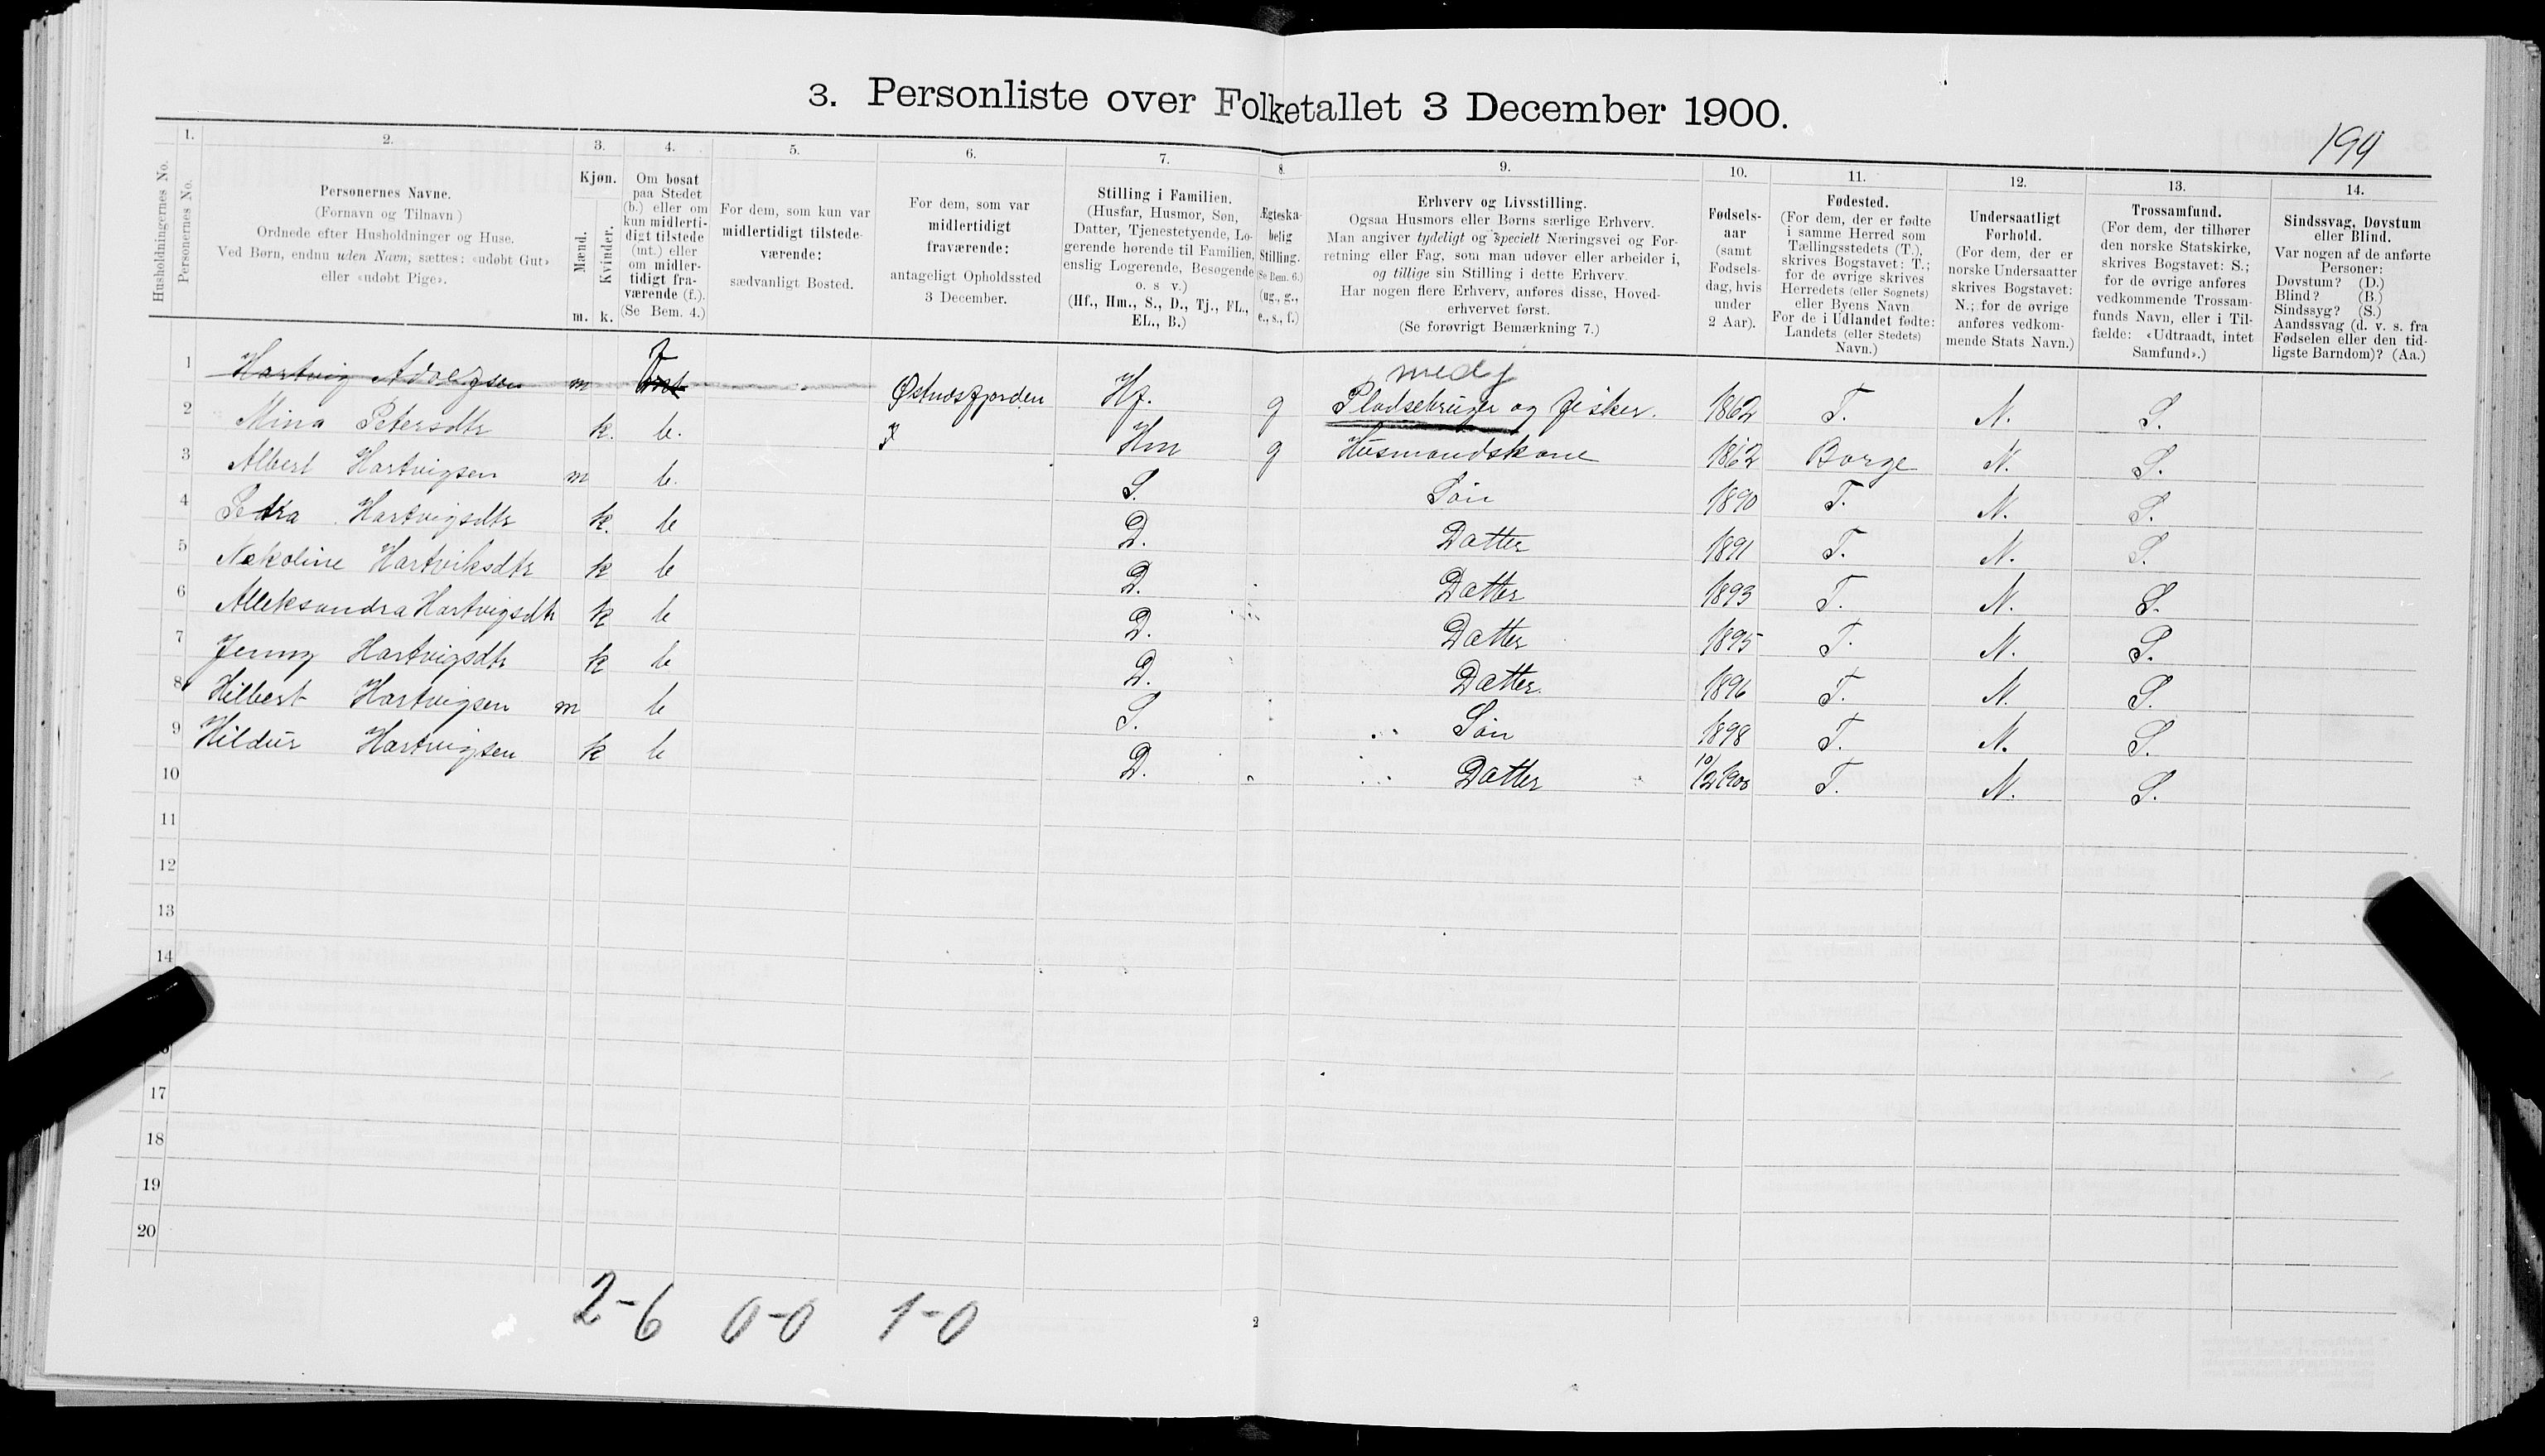 3. Personliste over Folketallet 3 December 1900.
199
Husholdningernes No.
1.
Personernes No.
2.
Personernes Navne.
(Fornavn og Tilnavn)
Ordnede efter Husholdninger og Huse.
Ved Børn, endnu uden Navn, sættes: «udøbt Gut»
eller «udøbt Pige».
3.
Kjøn.
Mænd.
Kvinder.
m. k.
4.
Om bosat
paa Stedet
(b.) eller om
kun midlerti-
digt tilstede
(mt.) eller
om midler-
tidigt fra-
værende (f.).
(Se Bem. 4.)
5.
For dem, som kun var
midlertidigt tilstede-
værende:
sædvanligt Bosted.
6.
For dem, som var
midlertidigt
fraværende:
antageligt Opholdssted
3 December.
7.
Stilling i Familien.
(Husfar, Husmor, Søn,
Datter, Tjenestetyende, Lo-
gerende hørende til Familien,
enslig Logerende, Besøgende
o. s v.)
(Hf., Hm., S., D., Tj., FL.,
EL., B.)
8.
Ægteska-
belig
Stilling.
(Se Bem. 6.)
(ug., g.,
e., s., f.)
9.
Erhverv og Livsstilling.
Ogsaa Husmors eller Børns særlige Erhverv.
Man angiver tydeligt og specielt Næringsvei og For-
retning eller Fag, som man udøver eller arbeider i,
og tillige sin Stilling i dette Erhverv.
Har nogen flere Erhverv, anføres disse, Hoved-
erhvervet først.
(Se forøvrigt Bemærkning 7.)
10.
Fødsels-
aar
(samt
Fødsels-
dag, hvis
under
2 Aar).
11.
Fødested.
(For dem, der er fødte
i samme Herred som
Tællingsstedets (T.),
skrives Bogstavet: T.;
for de øvrige skrives
Herredets (eller Sognets)
eller Byens Navn
For de i Udlandet fødte:
Landets (eller Stedets)
Navn.)
12.
Undersaatligt
Forhold.
(For dem, der er
norske Undersaatter
skrives Bogstavet:
N.; for de øvrige
anføres vedkom-
mende Stats Navn.)
13.
Trossamfund.
(For dem, der tilhører
den norske Statskirke,
skrives Bogstavet: S.;
for de øvrige anføres
vedkommende Trossam-
funds Navn, eller i Til-
fælde: «Udtraadt, intet
Samfund».)
14.
Sindssvag, Døvstum
eller Blind.
Var nogen af de anførte
Personer:
Døvstum? (D.)
Blind? (B.)
Sindssyg? (S.)
Aandssvag (d. v. s. fra
Fødselen eller den tid-
ligste Barndom)? (Aa.)
1 Hartvig Adolfsen m f Østnesfjorden Hf. g Pladsebruger og fisker. 1862 T. N. S.
2 Mina Petersdtr k. b. Hm g Husmandskone 1862 Borge N. S.
3 Albert Hartvigsen m b. S. Søn 1890 T. N. S.
4 Petra Hartvigsdtr k. b D. Datter 1891 T. N. S.
5 Nekoline Hartviksdtr k b D. Datter 1893 T. N. S.
6 Alleksandra Hartvigsdtr k b D. Datter 1895 T. N. S.
7 Jenny Hartvigsdtr k b D. Datter 1896 T. N. S.
8 Hilbert Hartvigsen m b S. Søn 1898 T. N. S.
9 Hildur Hartvigsen k b D. Datter 10/2 1900 T. N. S.
10
11
12
13
14
17
18
19
20
2-6 0-0 1-0
2